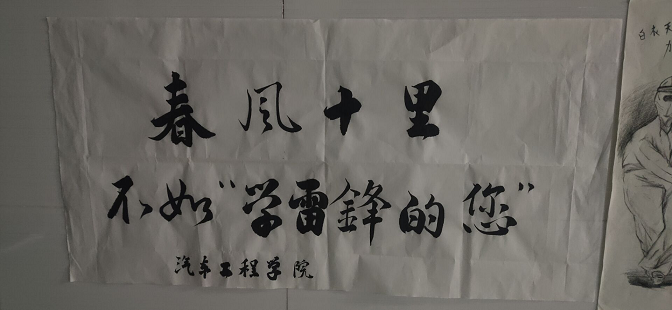 春风十里
不如"学雷鋒的您"
汽车工程学院
白衣天